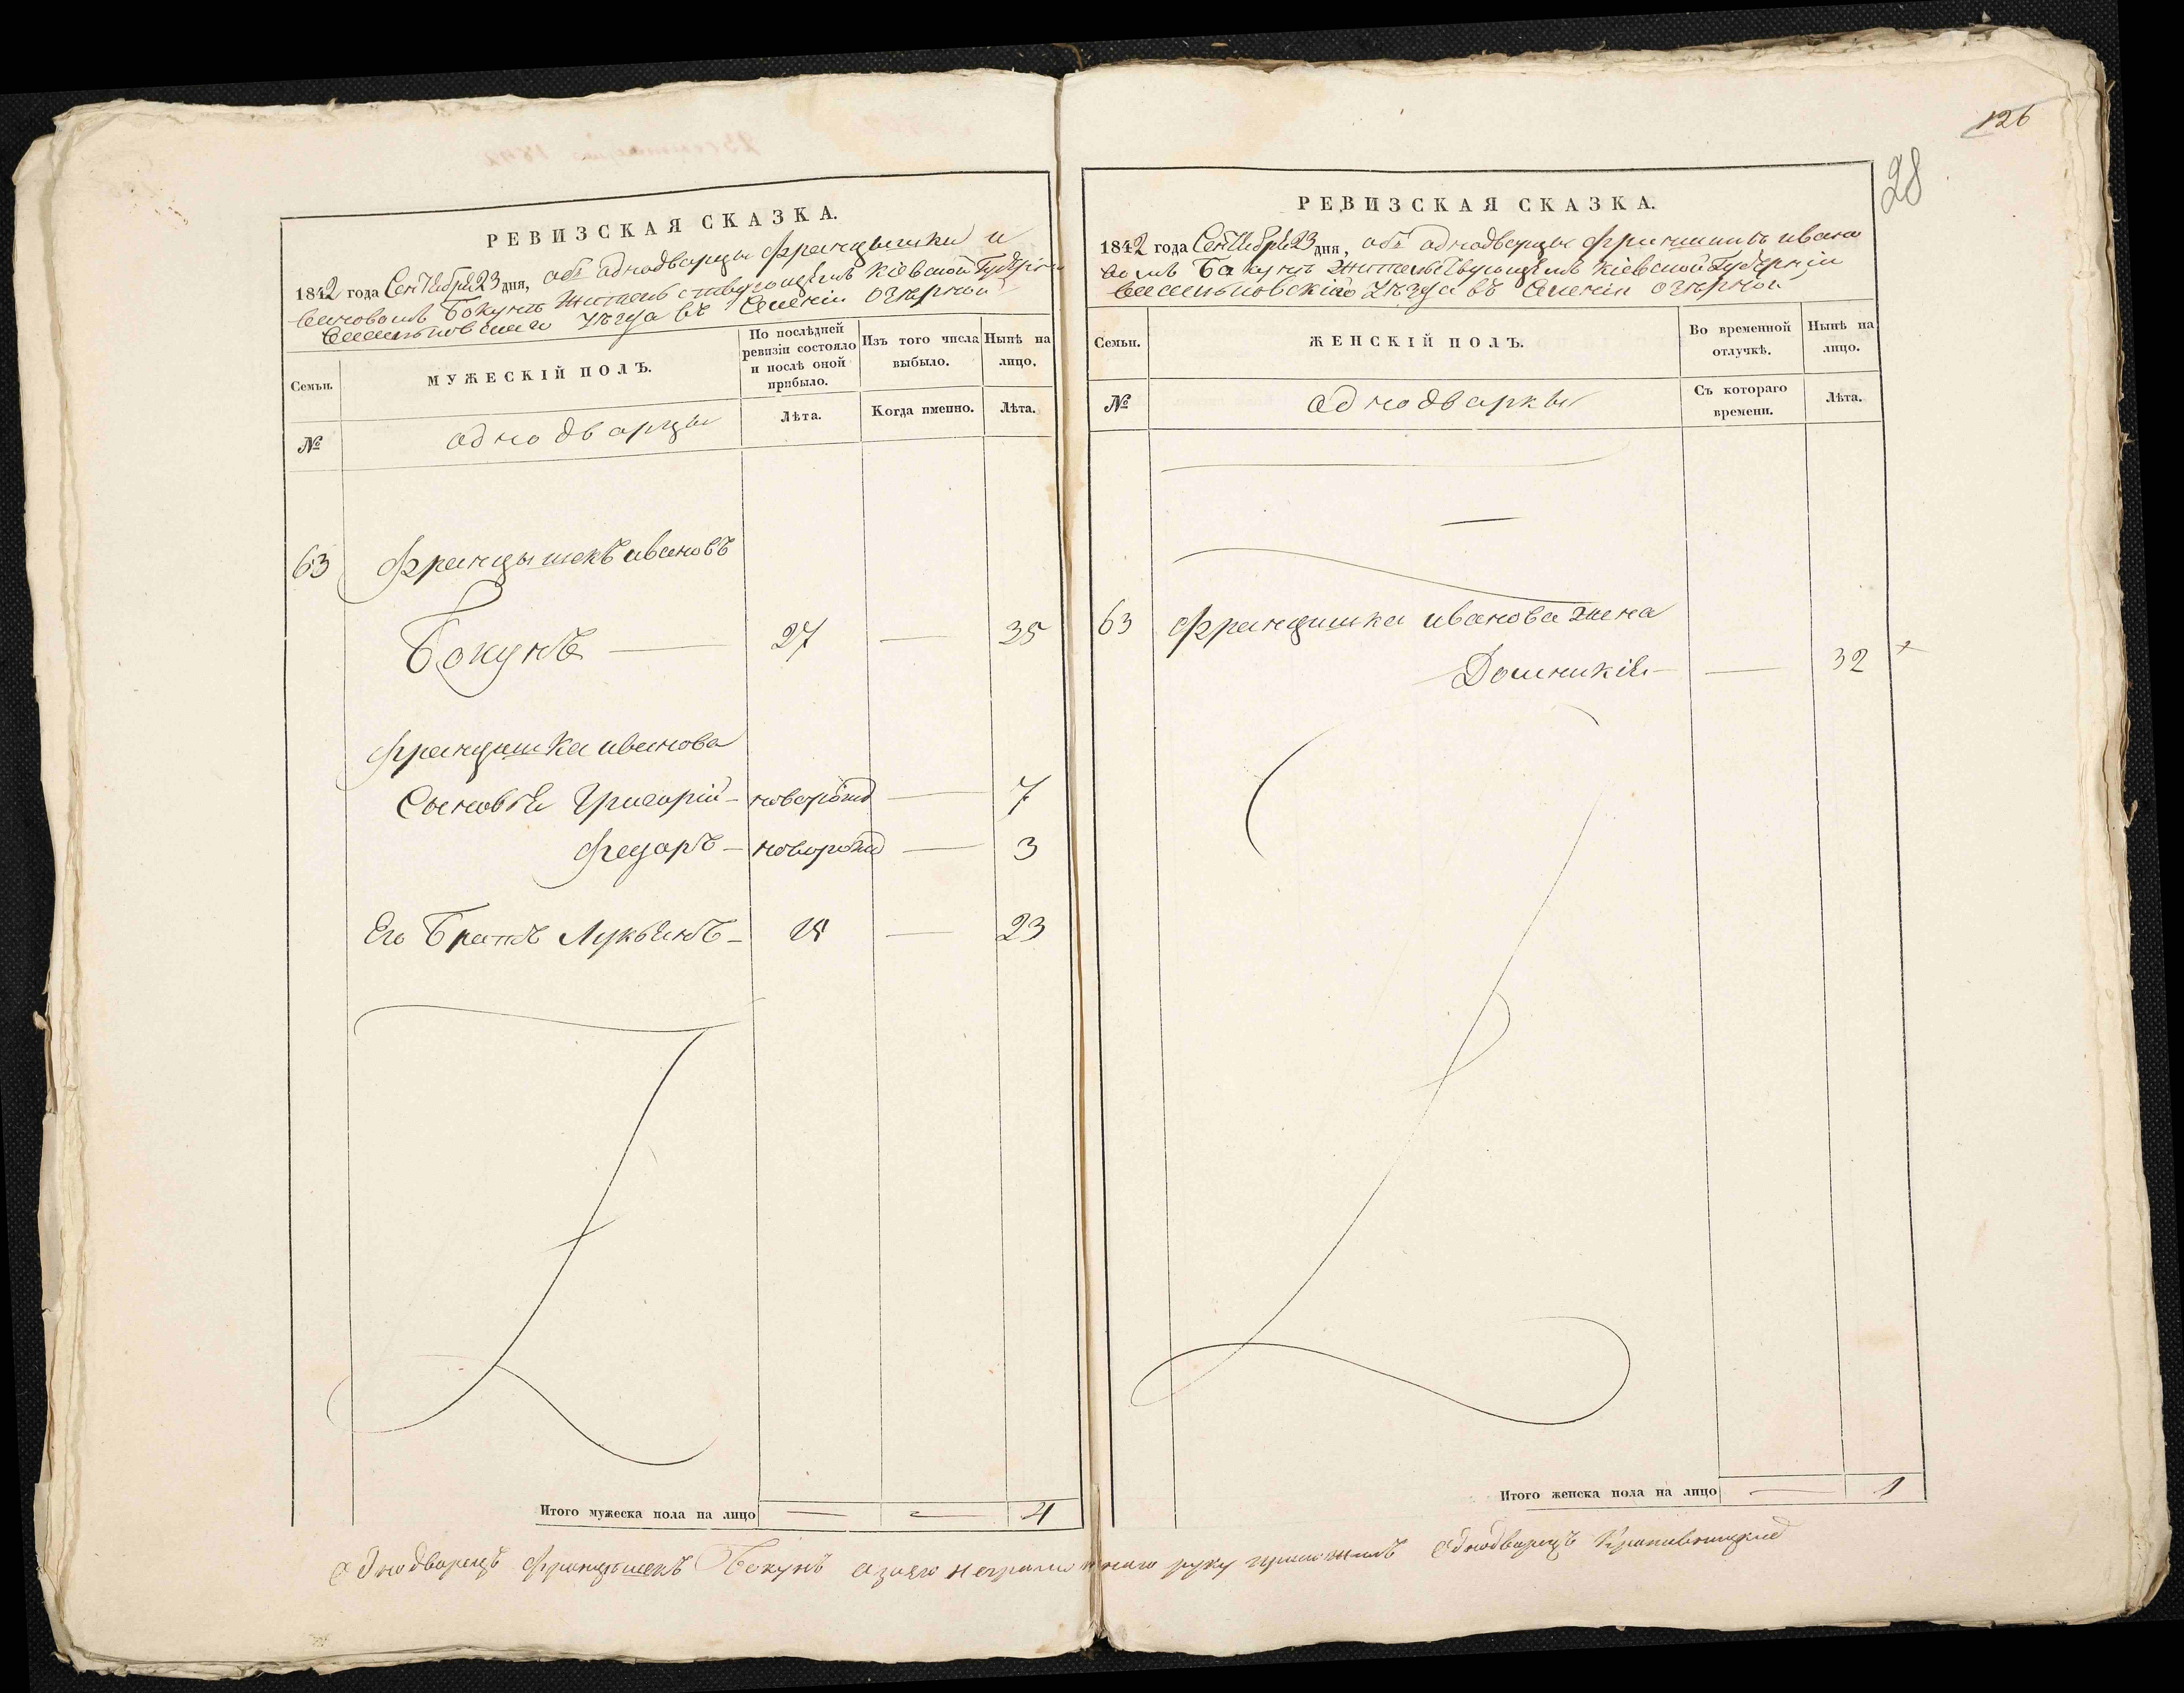 РЕВИЗСКАЯ СКАЗКА.
1842 года Сентября 23 дня, объ однодворцы Францышки и
вановомъ Бокунъ жительствующемъ Кіевской Губерніи
Васильковскаго уезда въ Селеніи Озерной
Семьи.
МУЖЕСКІЙ ПОЛЪ.
По послѣдней ревизіи состояло и послѣ оной прибыло.
Изъ того числа выбыло.
Нынѣ на лицо.
№
однодворцы
Лѣта.
Когда именно.
Лѣта.
63 Францышекъ ивановъ
Бокунъ — 27 — 35
Францишка иванова
Сыновья Григорій - новорожд — 7
Федоръ - новорожд — 3
Его Братъ Лукьянъ - — 23
Итого мужеска пола на лицо — — 4
126
28
РЕВИЗСКАЯ СКАЗКА.
1842 года Сентября 23 дня, объ однодворцы ивано
вомъ Бакунъ жительствующемъ Кіевской Губерніи
Васильковскаго уезда въ Селеніи Озерной
Семьи.
ЖЕНСКІЙ ПОЛЪ.
Во временной отлучкѣ.
Нынѣ на лицо.
№
однодворкы
Съ котораго времени.
Лѣта.
63 Францишка иванова жена
— 32 +
Итого женска пола на лицо — 1
Однодворецъ Францышекъ Бокунъ а занего неграмотнаго руку приложилъ Однодворецъ